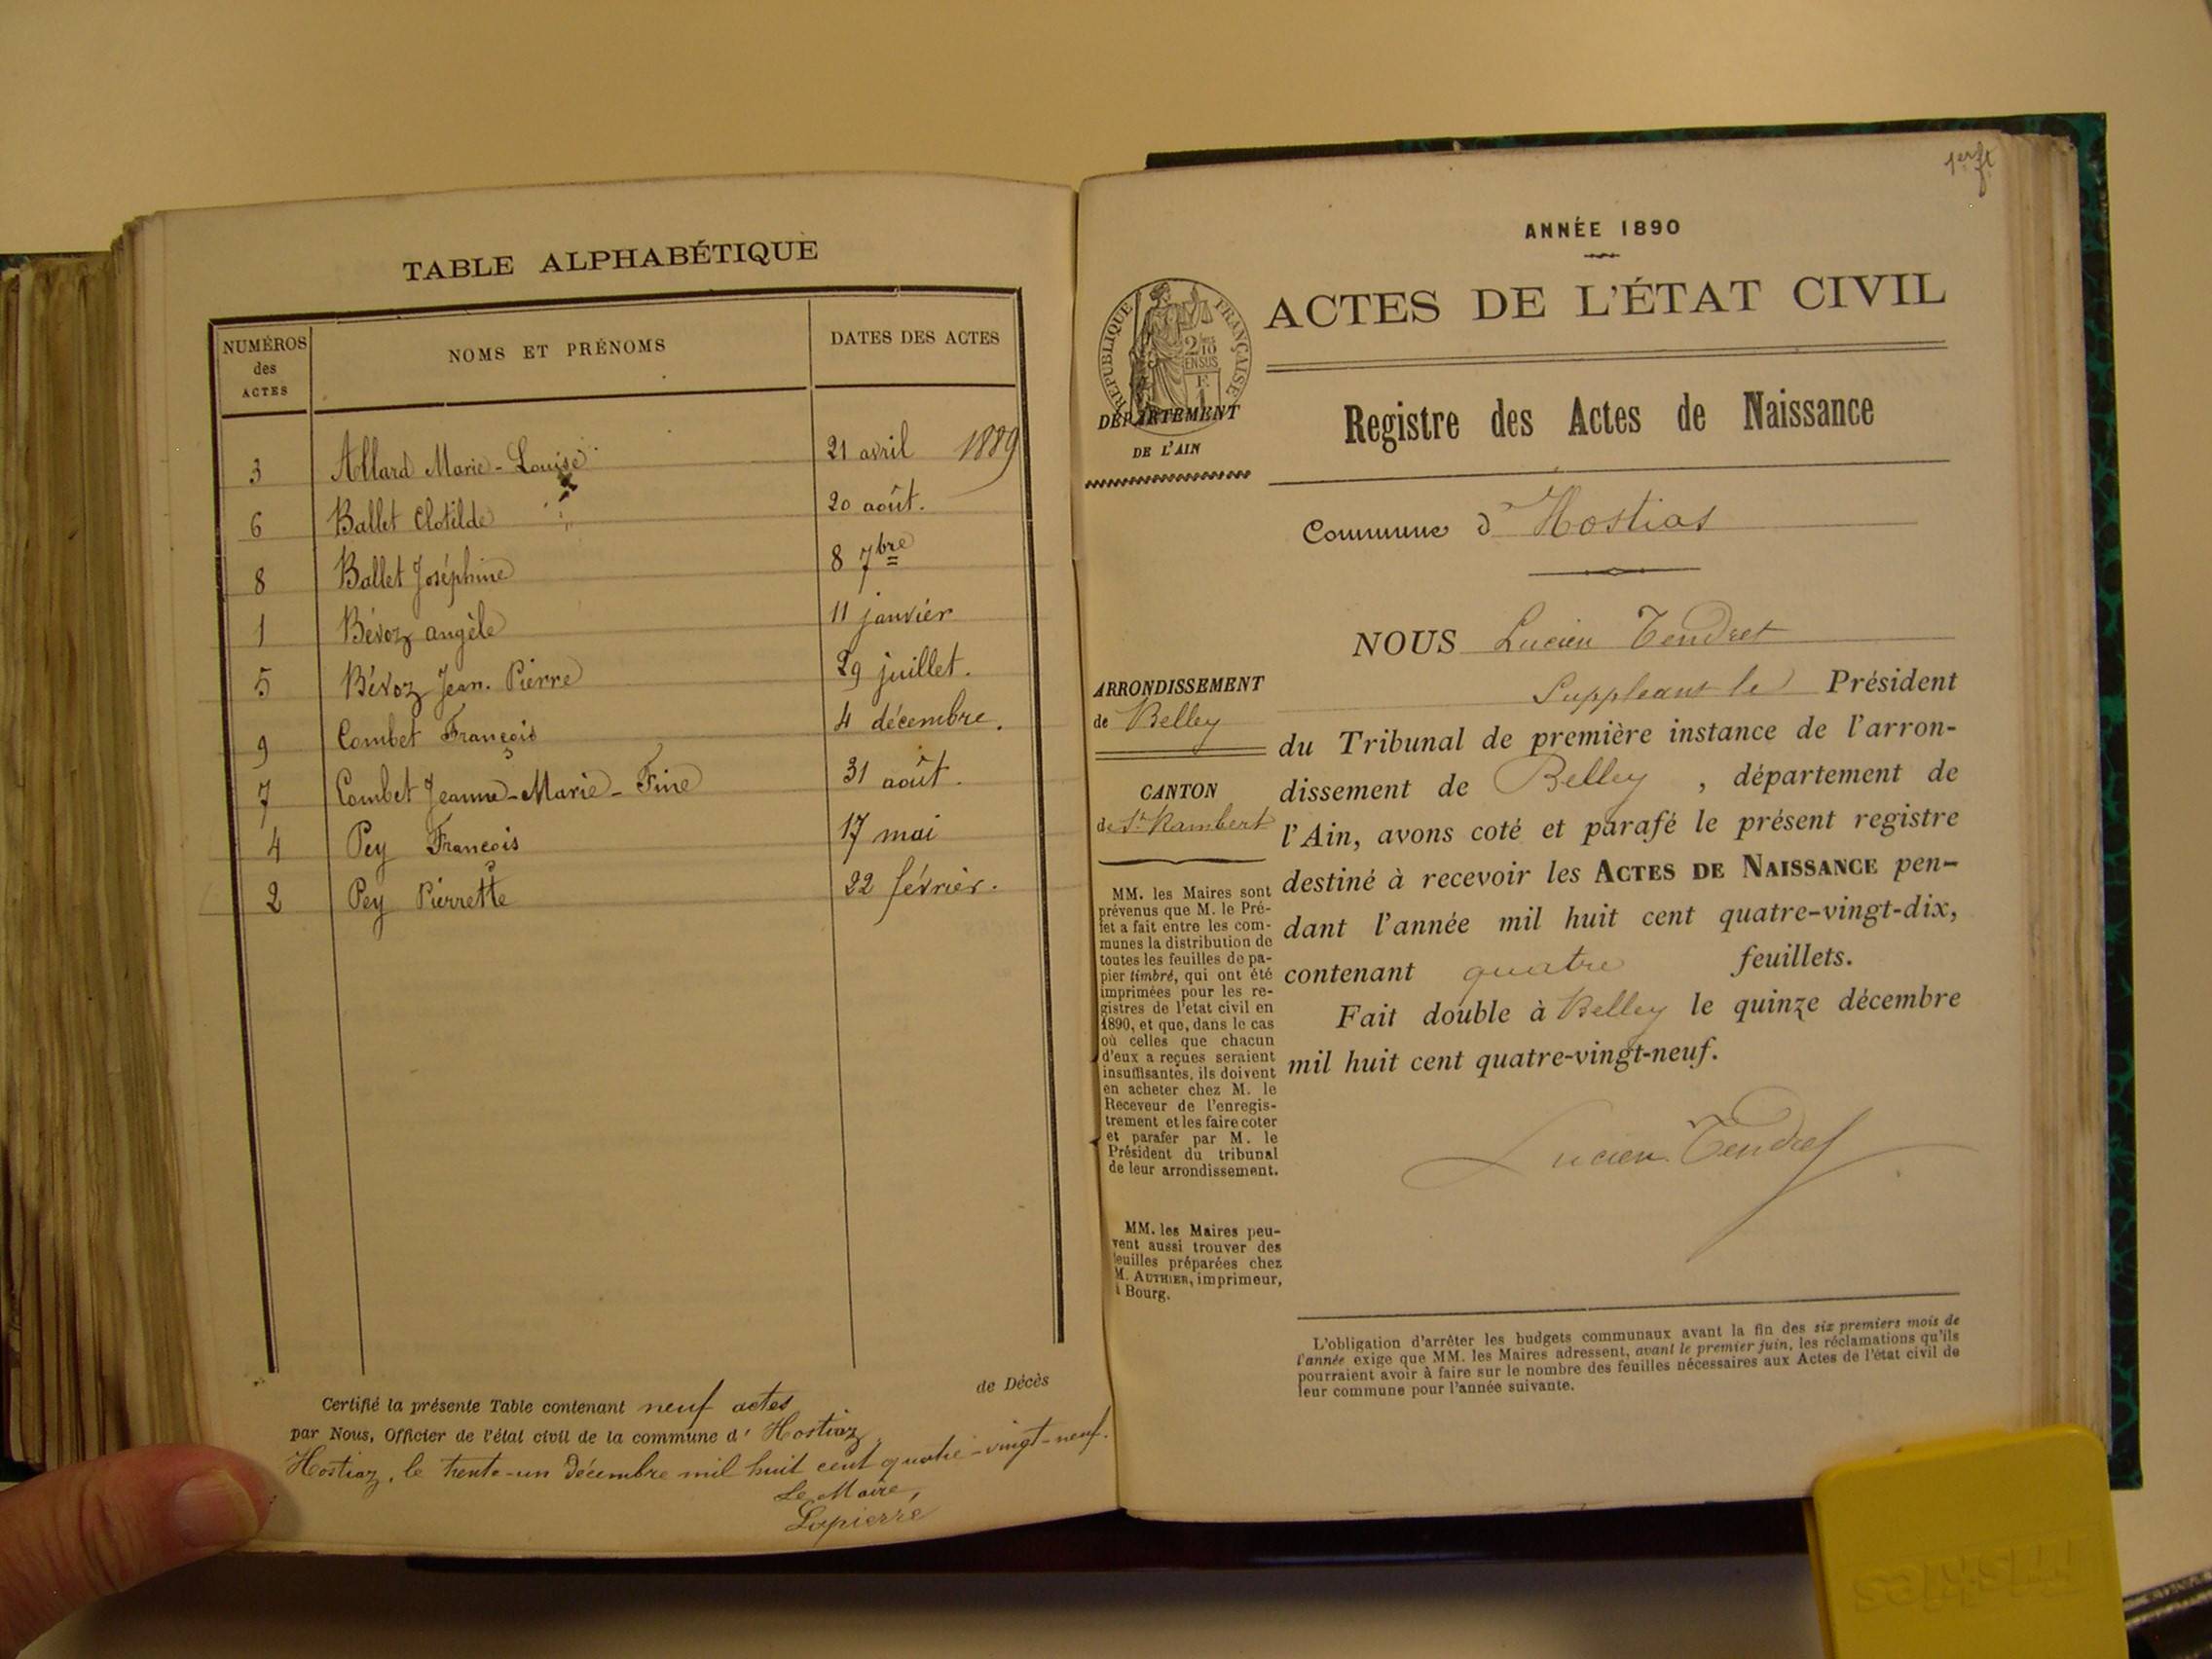 TABLE ALPHABÉTIQUE
NUMÉROS des ACTES NOMS ET PRÉNOMS DATES DES ACTES
3 Allard Marie-Louise 21 avril 1889
6 Ballet Clotilde 20 août.
8 Ballet Joséphine 8 7bre
1 Bévoz angèle 11 janvier
5 Bévoz Jean-Pierre 29 juillet.
9 Combet François 4 décembre.
7 Combet Jeanne-Marie-Fine 31 août.
4 Pey François 17 mai
2 Pey Pierrette 22 février.
de Décès
Certifié la présente Table contenant neuf actes
par Nous, Officier de l'état civil de la commune d' Hostiaz.
Hostiaz, le trente-un décembre mil huit cent quatre-vingt-neuf.
Le Maire,
Lapierre
1er ft
ANNÉE 1890
ACTES DE L'ÉTAT CIVIL
RÉPUBLIQUE FRANÇAISE
2/10 EN SUS
DÉPARTEMENT
DE L'AIN
Registre des Actes de Naissance
Commune d'Hostias
NOUS Lucien Tendret
Suppléant le Président
du Tribunal de première instance de l'arron-
dissement de Belley, département de
l'Ain, avons coté et parafé le présent registre
destiné à recevoir les ACTES DE NAISSANCE pen-
dant l'année mil huit cent quatre-vingt-dix,
contenant quatre feuillets.
Fait double à Belley le quinze décembre
mil huit cent quatre-vingt-neuf.
Lucien Tendret
ARRONDISSEMENT
de Belley
CANTON
de St Rambert
MM. les Maires sont
prévenus que M. le Pré-
fet a fait entre les com-
munes la distribution de
toutes les feuilles de pa-
pier timbré, qui ont été
imprimées pour les re-
gistres de l'etat civil en
1890, et que, dans le cas
où celles que chacun
d'eux a reçues seraient
insuffisantes, ils doivent
en acheter chez M. le
Receveur de l'enregis-
trement et les faire coter
et parafer par M. le
Président du tribunal
de leur arrondissement.
MM. les Maires peu-
vent aussi trouver des
feuilles préparées chez
M. AUTHIER, imprimeur,
à Bourg.
L'obligation d'arrêter les budgets communaux avant la fin des six premiers mois de
l'année exige que MM. les Maires adressent, avant le premier juin, les réclamations qu'ils
pourraient avoir à faire sur le nombre des feuilles nécessaires aux Actes de l'état civil de
leur commune pour l'année suivante.
Friskies